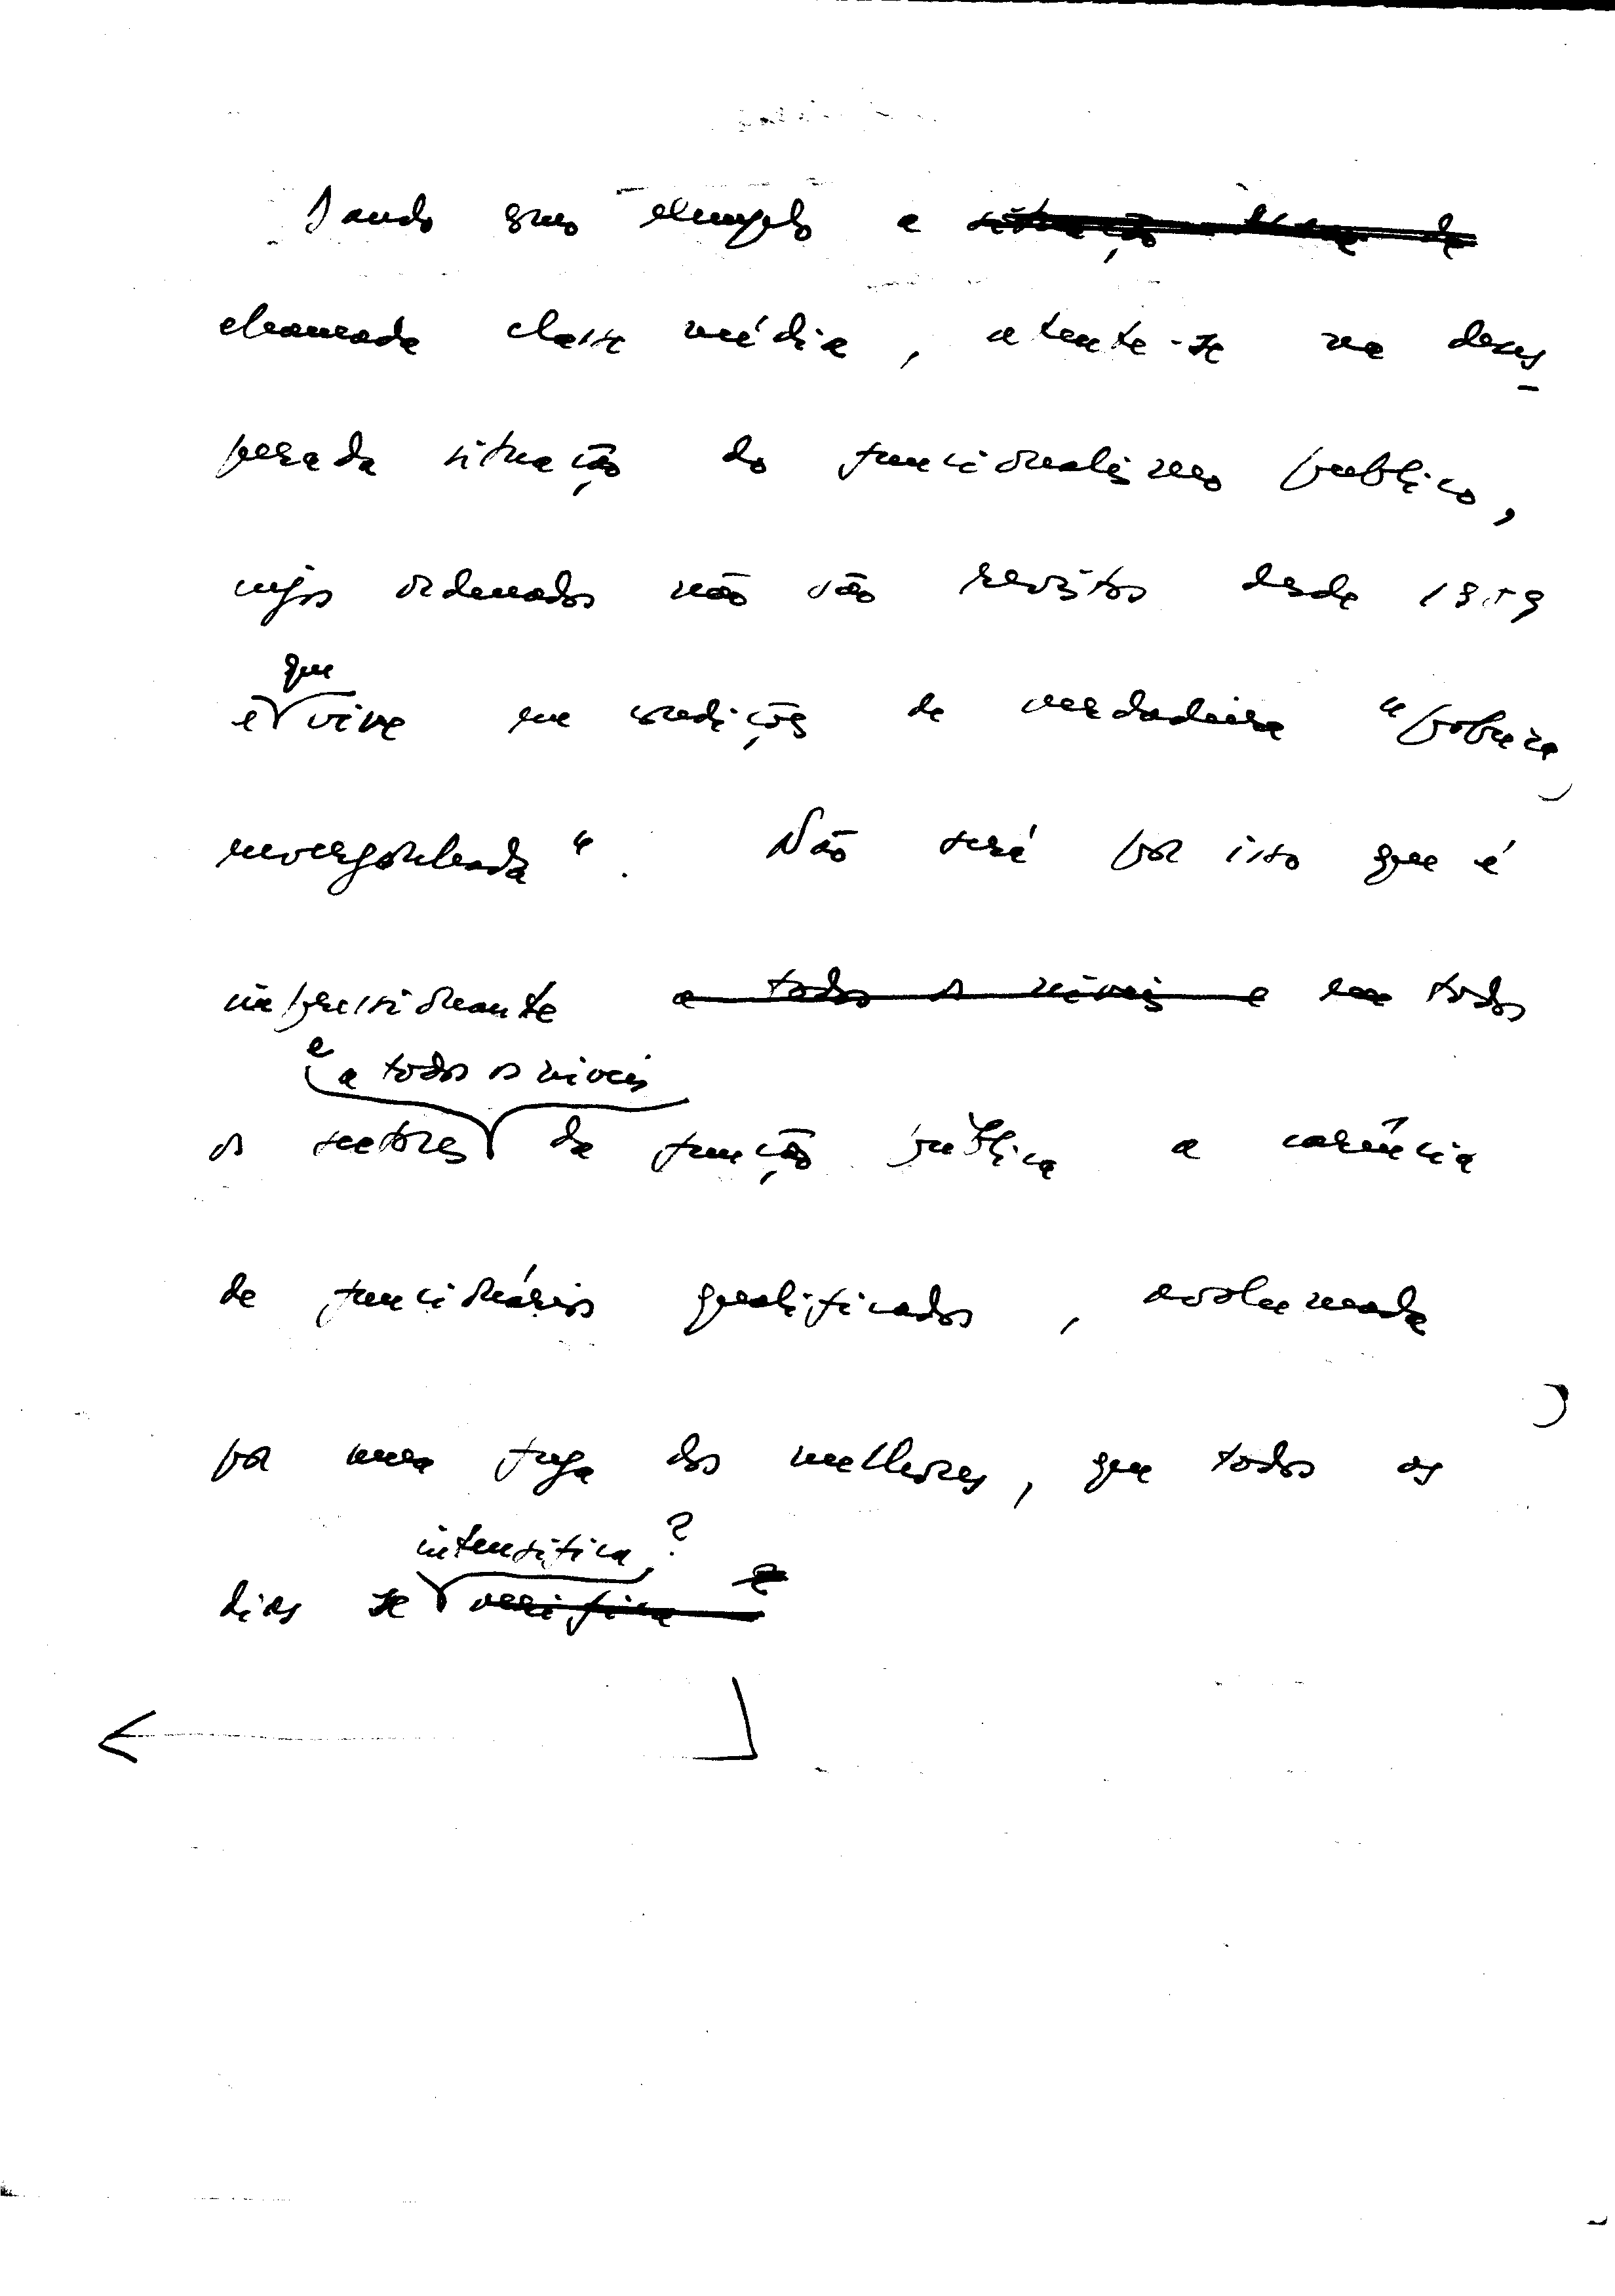 Dando como exemplo a ~~situação~~
chamada classe média, atente-se na deses
perada situação do funcionalismo publico,
cujos ordenados não são revistos desde 1959
que
e vive em condições de verdadeira "pobreza
envergonhada". Não será por isso que é
impressionante ~~a todos os níveis e~~ em todos
e a todos os níveis
os sectores da função pública a carência
de funcionários qualificados, avolumada
por uma fuga dos melhores, que todos os
intensifica?
dias se ~~verifica~~